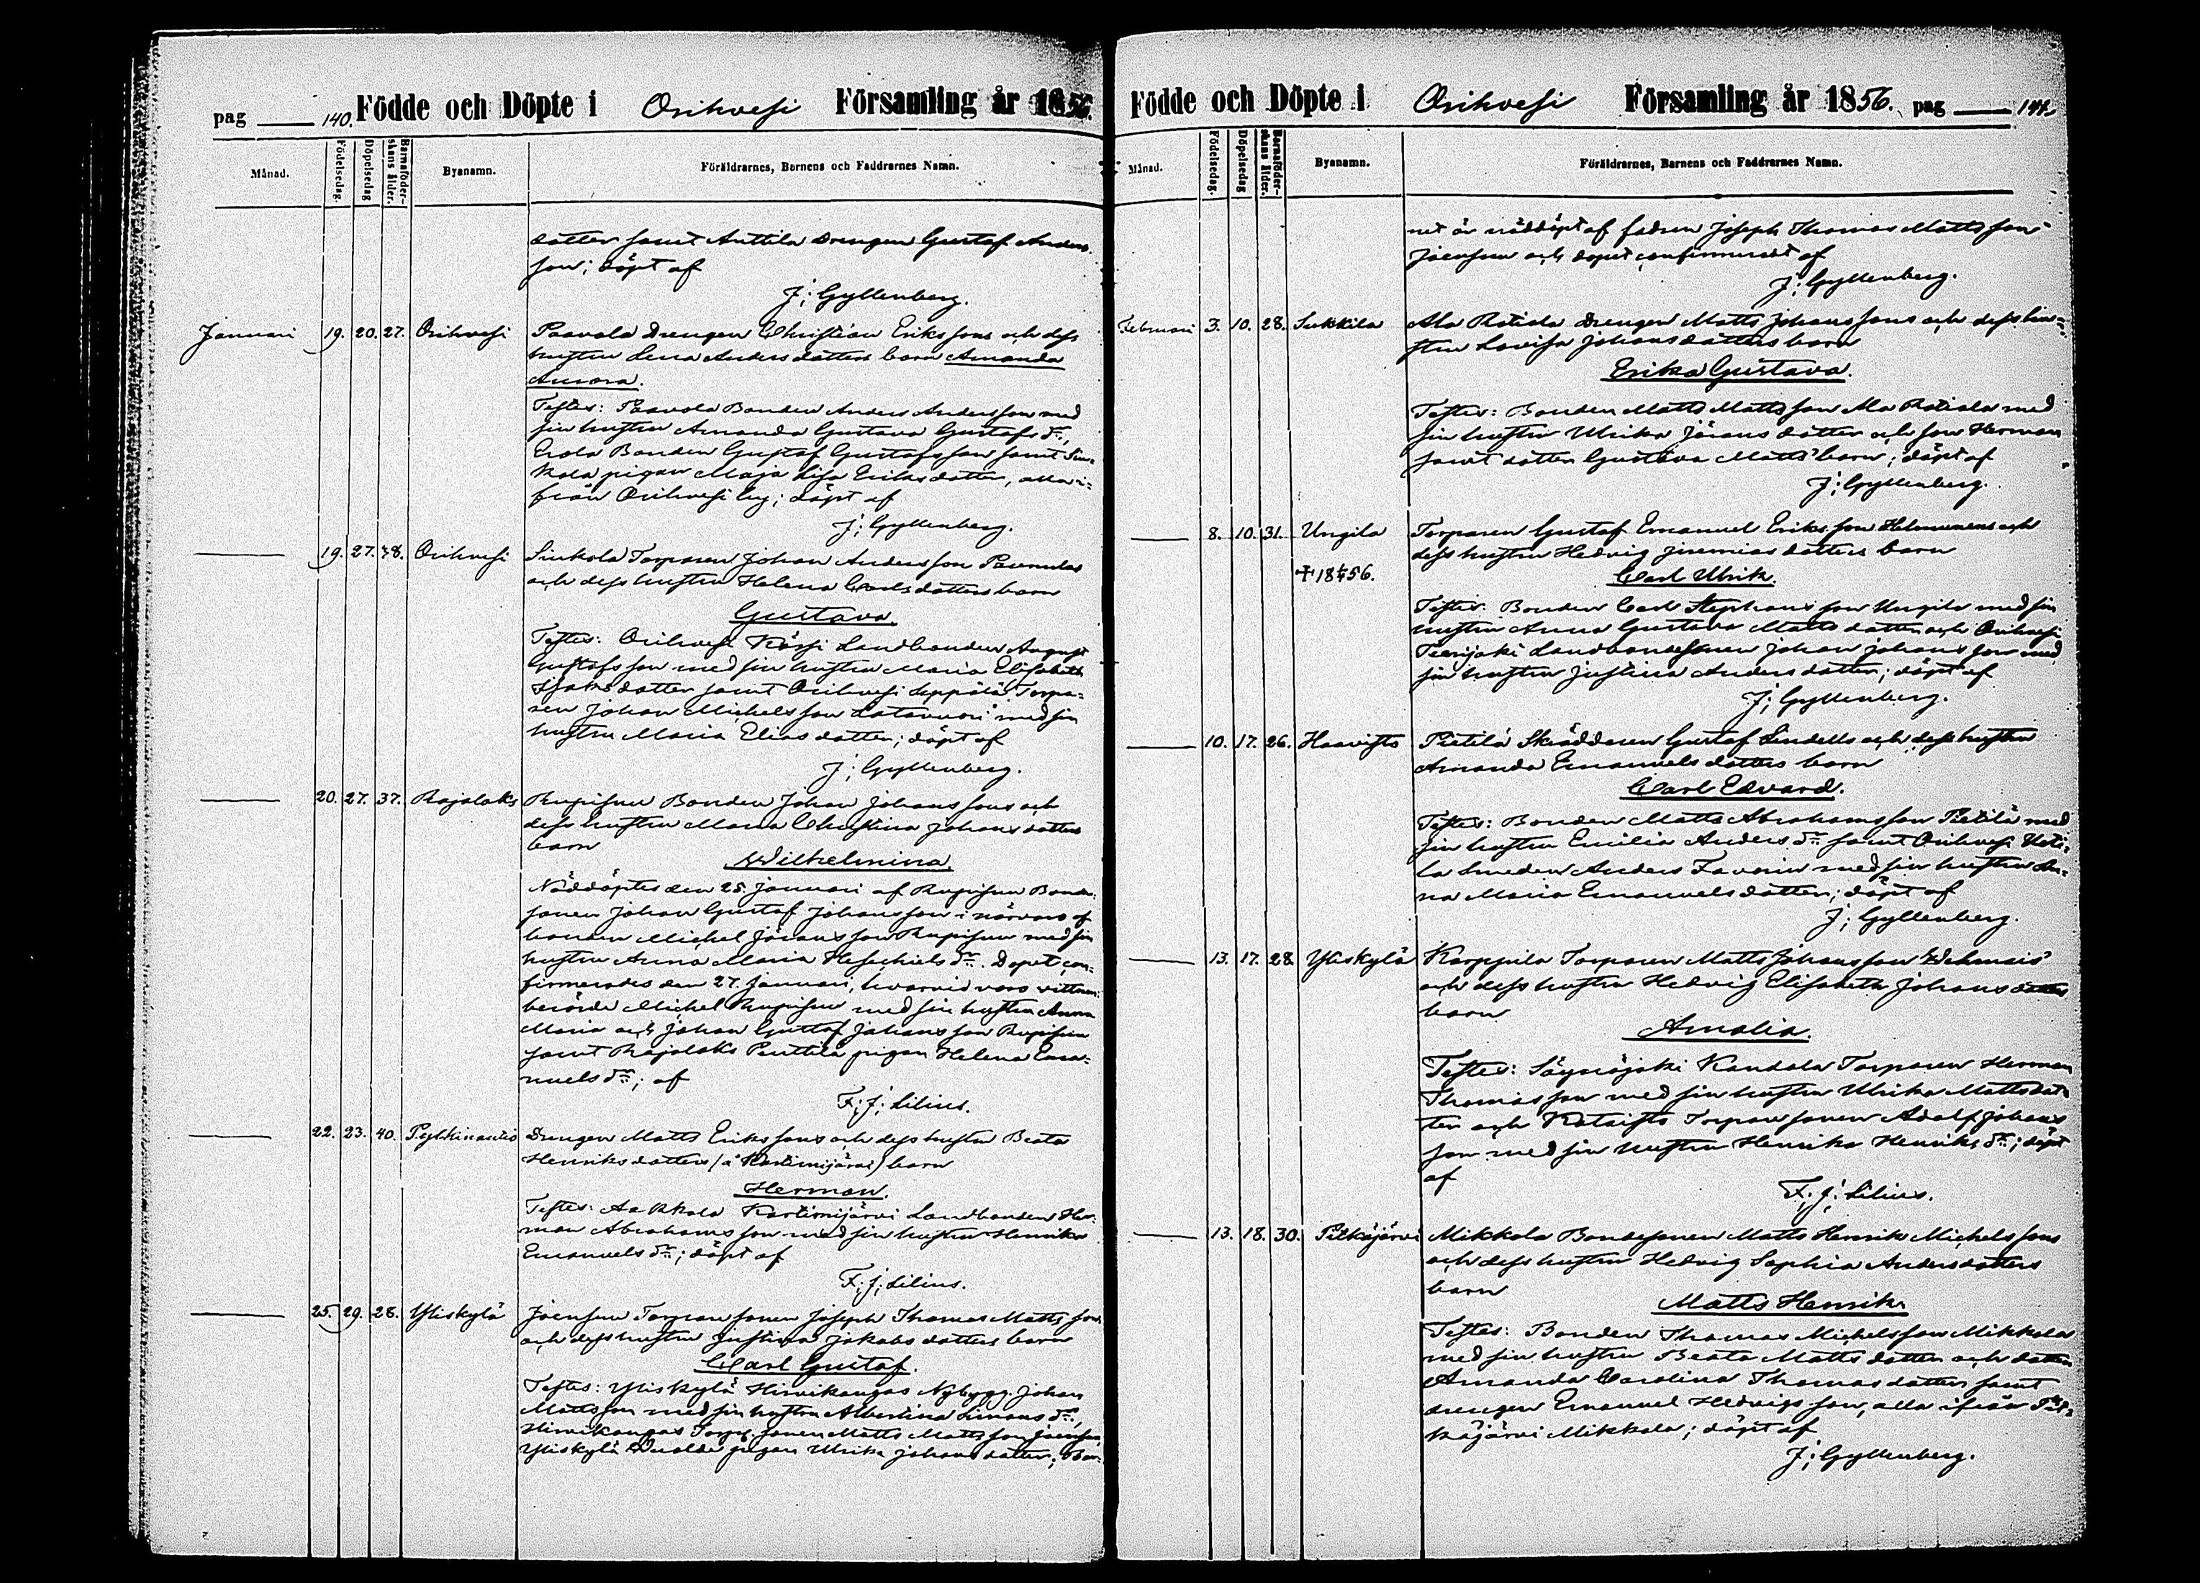 pag 140. Födde och Döpte i Orihvesi Församling år 1856.
Månad. Födelsedag. Döpelsedag Barnaföder-skans ålder. Byanamn. Föräldrarnes, Barnens och Faddrarnes Namn.
dotter samt Anttila Drengen Gustaf Anders-
son; döpt af
J; Gyllenberg.
Januari 19. 20. 27. Orihvesi Paavola Drengen Christian Erikssons och dess
hustru Lena Andersdotters barn Amanda
Aurora.
Testes: Paavola Bonden Anders Andersson med
sin hustru Amanda Gustava Gustafs dr.,
Erola Bonden Gustaf Gustafsson samt Siu-
kola pigan Maja Lisa Eriksdotter, alla i-
från Orihvesi by; döpt af
J; Gyllenberg.
19. 27. 48. Orihvesi Siukola Torparen Johan Andersson
och dess hustru Helena Carlsdotters barn
Gustava.
Testes: Orihvesi Landbonden August
Gustafsson med sin hustru Maria Elisabeth
Isaksdotter samt Orihvesi Seppälä Torpa-
ren Johan Michelsson Latovuori med sin
hustru Maria Eliasdotter; döpt af
J; Gyllenberg.
20. 27. 37. Rajalaks Rupisen Bonden Johan Johanssons och
dess hustru Maria Christina Johansdotters
barn
Wilhelmina.
Nöddöptes den 25 Januari af Rupisen Bonde-
sonen Johan Gustaf Johansson i närvaro af
bonden Michel Jöransson Rupisen med sin
hustru Anna Maria Hesechiels dr. Dopet con-
firmerades den 27 Januari, hvarvid voro vittnen:
berörde Michel Rupisen med sin hustru Anna
Maria och Johan Gustaf Johansson Rupisen
samt Rajalaks Penttilä pigan Helena Ema-
nuels dr.; af
F; J; Lilius.
22. 23. 40. Drengen Matts Erikssons och dess hustru Beata
Henriksdotters (å Kortemijärvi) barn
Herman.
Testes: Aakkola Kortemijärvi Landbonden Her-
man Abrahamsson med sin hustru Henrika
Emanuels dr.; döpt af
F; J; Lilius.
25. 29. 28. Yliskylä Joensuu Torparesonen Joseph Thomas Mattssons
och dess hustru Justina Jakobsdotters barn
Carl Gustaf.
Testes: Yliskylä Hirvikangas Nybygg. Johan
Mattsson med sin hustru Albertina Simons dr.,
Hirvikangas Torp. sonen Matts Mattsson Joensuu,
Yliskylä pigan Ulrika Johansdotter; Bar-
Födde och Döpte i Orihvesi Församling år 1856. pag 141.
Månad. Födelsedag. Döpelsedag Barnaföder-skans ålder. Byanamn. Föräldrarnes, Barnens och Faddrarnes Namn.
net är nöddöpt af fadren Joseph Thomas Mattsson
Joensuu och dopet confirmeradt af
J; Gyllenberg.
Februari 3. 10. 28. Sukkila Ala Rotiala Drengen Matts Johanssons och dess hu-
stru Lovisa Johansdotters barn
Erika Gustava.
Testes: Bonden Matts Mattsson Ala Rotiala med
sin hustru Ulrika Jöransdotter och son Herman
samt dotter Gustava Matts barn; döpt af
J; Gyllenberg.
8. 10. 31. Ungila Torparen Gustaf Emanuel Eriksson och
dess hustru Hedvig Jeremiasdotters barn
Carl Ulrik.
Testes: Bonden Carl Stephansson Ungila med sin
hustru Anna Gustava Mattsdotter och Orihvesi
Landbondesonen Johan Johansson med
sin hustru Justina Andersdotter; döpt af
J; Gyllenberg.
10. 17. 26. Haavisto Pietilä Skräddaren Gustaf Lindells och dess hustru
Amanda Emanuelsdotters barn
Carl Edvard.
Testes: Bonden Matts Abrahamsson Pietilä med
sin hustru Emilia Anders dr. samt Orihvesi Uoti-
la Smeden Anders Favorin med sin hustru An-
na Maria Emanuelsdotter; döpt af
J; Gyllenberg.
13. 17. 28. Yliskylä Karppila Torparen Matts Johansson
och dess hustru Hedvig Elisabeth Johansdotters
barn
Amalia.
Testes: Säynäjoki Kandola Torparen Herman
Thomasson med sin hustru Ulrika Mattsdot-
ter och Torparesonen Adolf Johans-
son med sin hustru Henrika Henriks dr.; döpt
af
F; J; Lilius.
13. 18. 30. Pitkäjärvi Mikkola Bondesonen Matts Henrik Michelssons
och dess hustru Hedvig Sophia Andersdotters
barn
Matts Henrik.
Testes: Bonden Thomas Michelsson Mikkola
med sin hustru Beata Mattsdotter och dotter
Amanda Carolina Thomasdotter samt
drengen Emanuel Hedvigsson, alla ifrån Pit-
käjärvi Mikkola; döpt af
J; Gyllenberg.